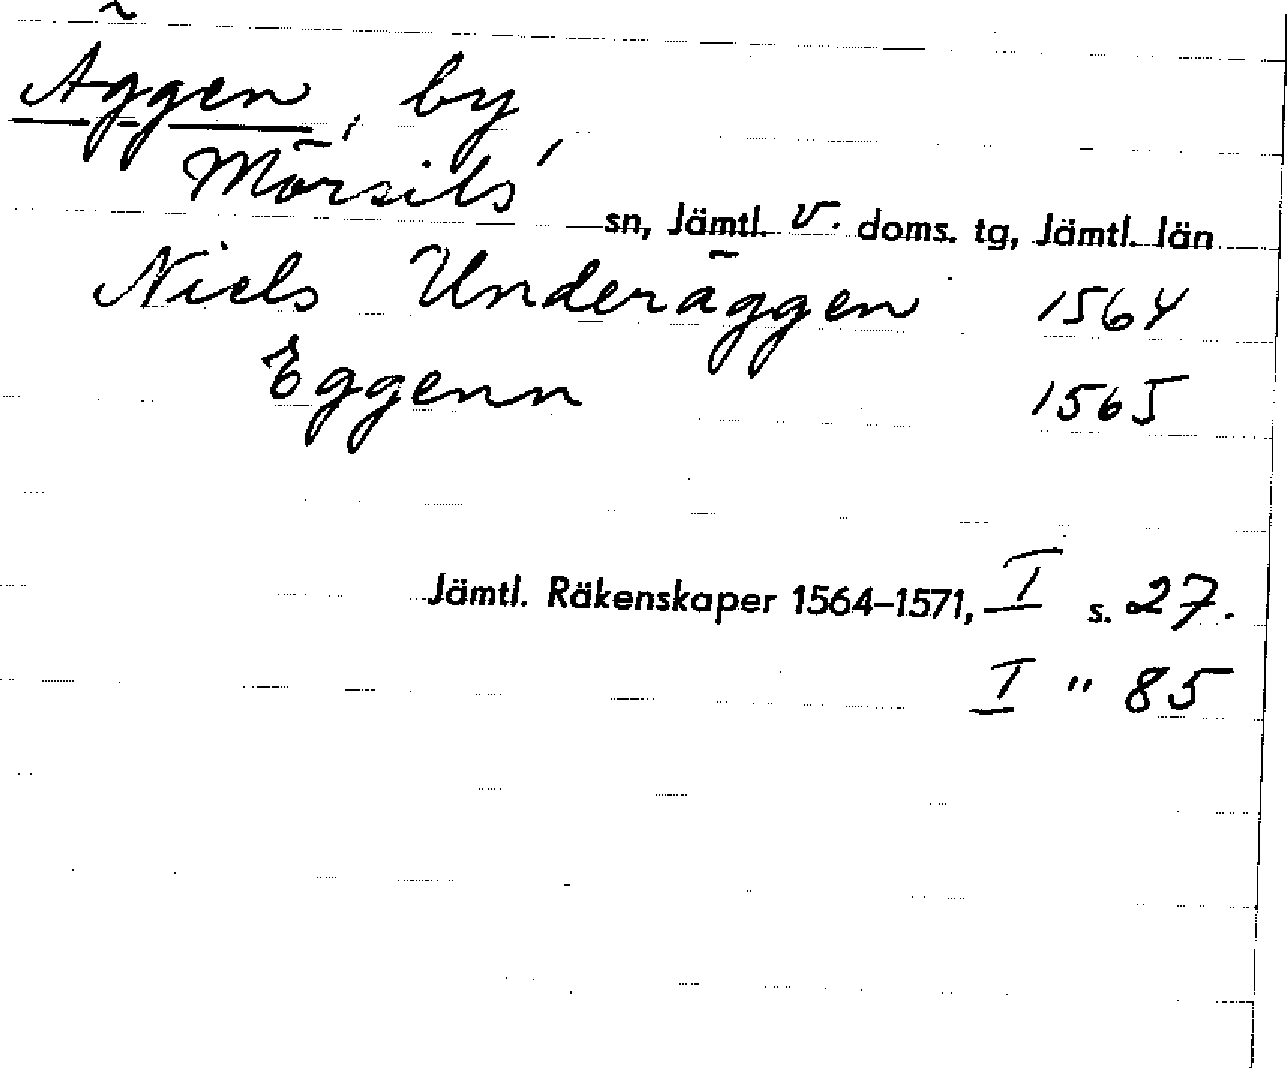 Äggen, by,
Mörsils sn, Jämtl. v. doms. tg, Jämtl. län
Niels Underäggen 1564
Eggenn 1565
Jämtl. Räkenskaper 1564–1571, I s. 27.
I " 85